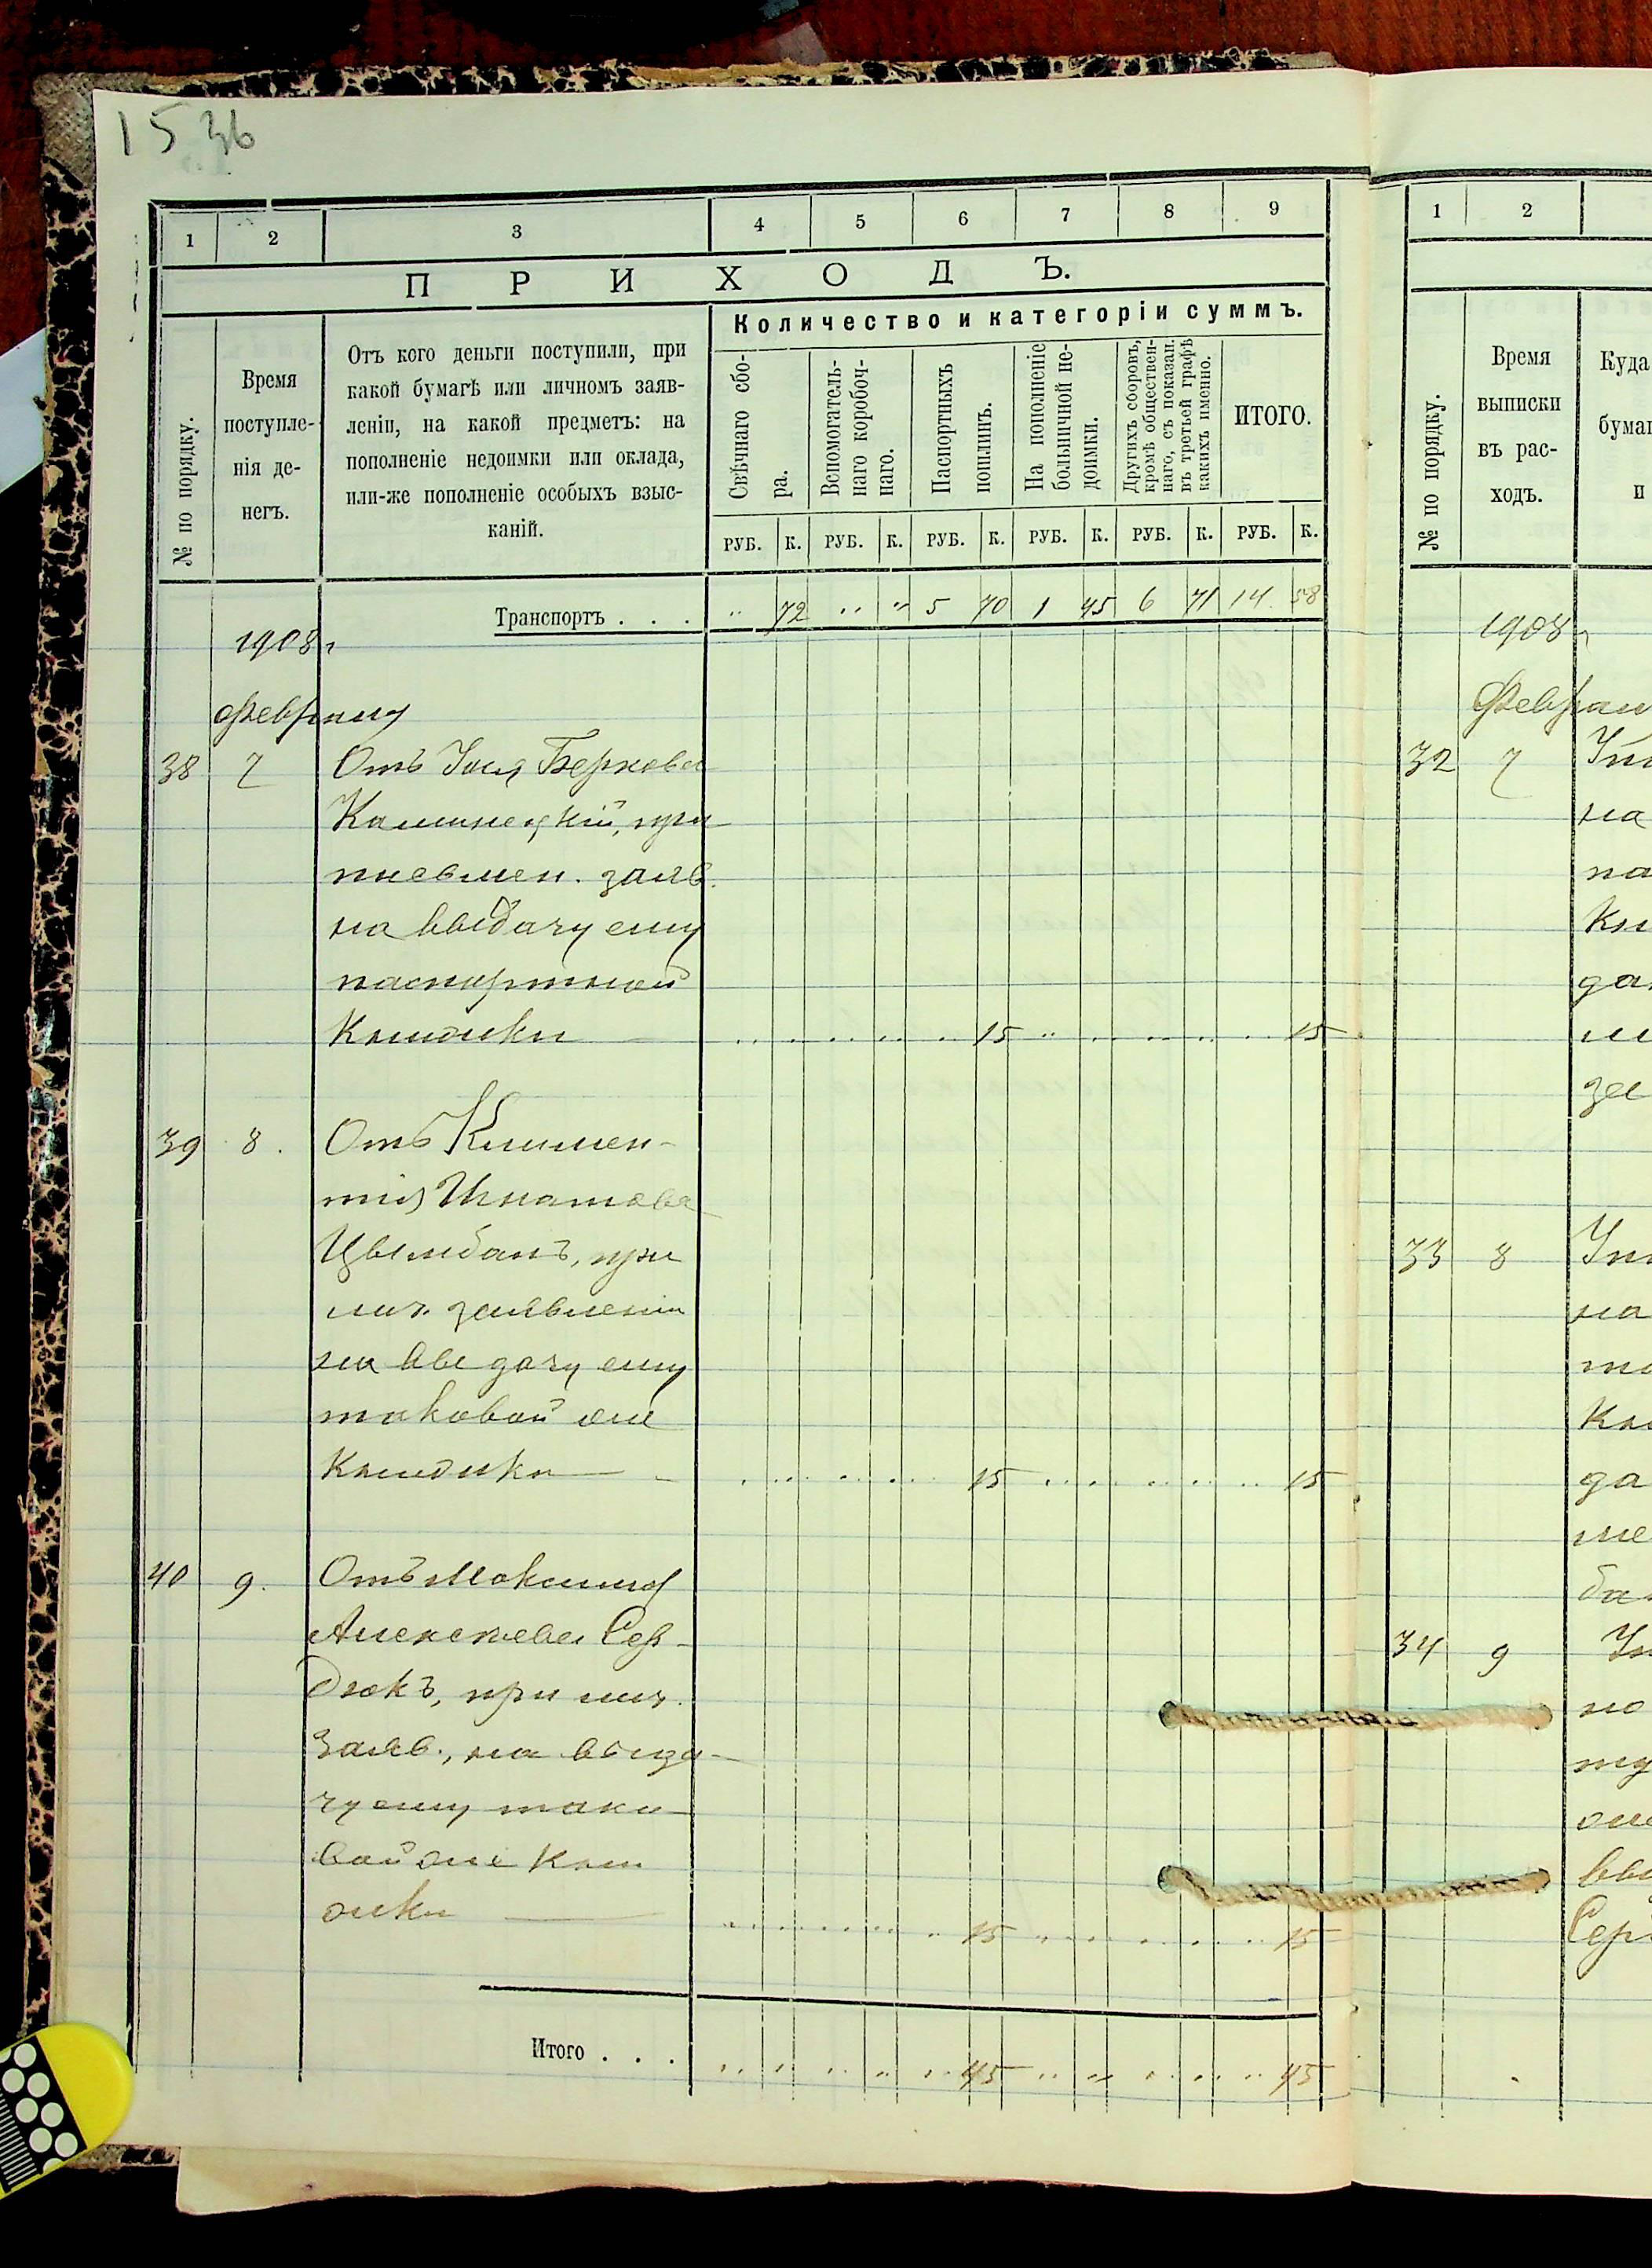 1536
1 2 3 4 5 6 7 8 9
ПРИХОДЪ.
№ по порядку.
Время
поступле-
нія де-
негъ.
Отъ кого деньги поступили, при
какой бумагѣ или личномъ заяв-
леніи, на какой предметъ: на
пополненіе недоимки или оклада,
или-же пополненіе особыхъ взыс-
каній.
Количество и категоріи суммъ.
Свѣчнаго сбо-
ра.
Вспомогатель-
наго коробоч-
наго.
Паспортныхъ
пошлинъ.
На пополненіе
больничной не-
доимки.
Другихъ сборовъ,
кромѣ обществен-
наго, съ показан.
въ третьей графѣ
какихъ именно.
ИТОГО.
РУБ. К. РУБ. К. РУБ. К. РУБ. К. РУБ. К. РУБ. К.
Транспортъ . . . „ 72 „ „ 5 70 1 45 6 71 14 58
1908 г
Февраля
38 7 Отъ Іося Беркова
Каминецкій, при
письмен. заяв.
на выдачу ему
паспортной
Книжки 15 15
39 8. Отъ Климен-
тія Игнатова
Цымбалъ, при
лич. заявленіи
на выдачу ему
таковой же
Книжки 15 15
40 9. Отъ Максима
Алексѣева Сер-
дюкъ, при лич.
заяв., на выда-
чу ему тако-
вой же Кни
жки 15 15
Итого . . . 45 45
1 2
№ по порядку.
Время
выписки
въ рас-
ходъ.
Куда
бумаг
и
1908 г
Феврал
32 7
на
па
Кн
да
зе
33 8
на
та
Кн
да
ме
ба
34 9
по
же
вы
Серд